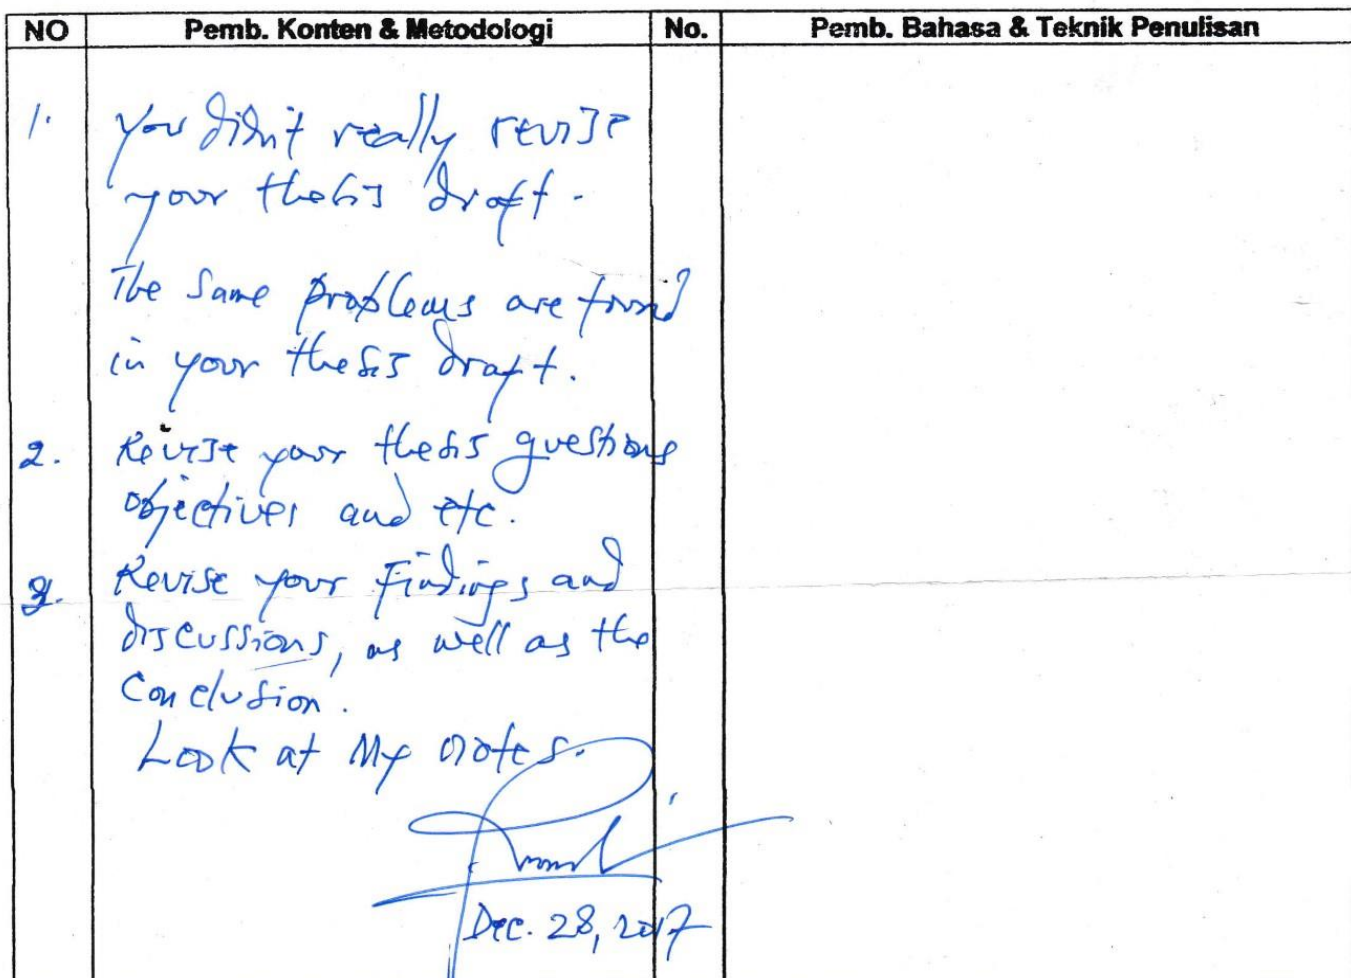 NO Pemb. Konten & Metodologi No. Pemb. Bahasa & Teknik Penulisan
1. You didn't really revise
your thesis draft.
The same problems are found
in your thesis draft.
2. Revise your thesis questions
objectives and etc.
3. Revise your Findings and
discussions, as well as the
Conclusion.
Look at My notes.
Dec. 28, 2017